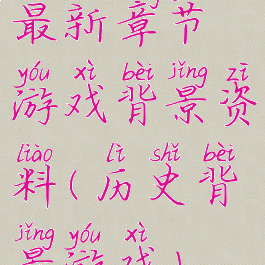 最新章节
yóu xì bèi jǐng zī
游戏背景资
liào lì shǐ bèi
料(历史背
jǐng yóu xì
景游戏)